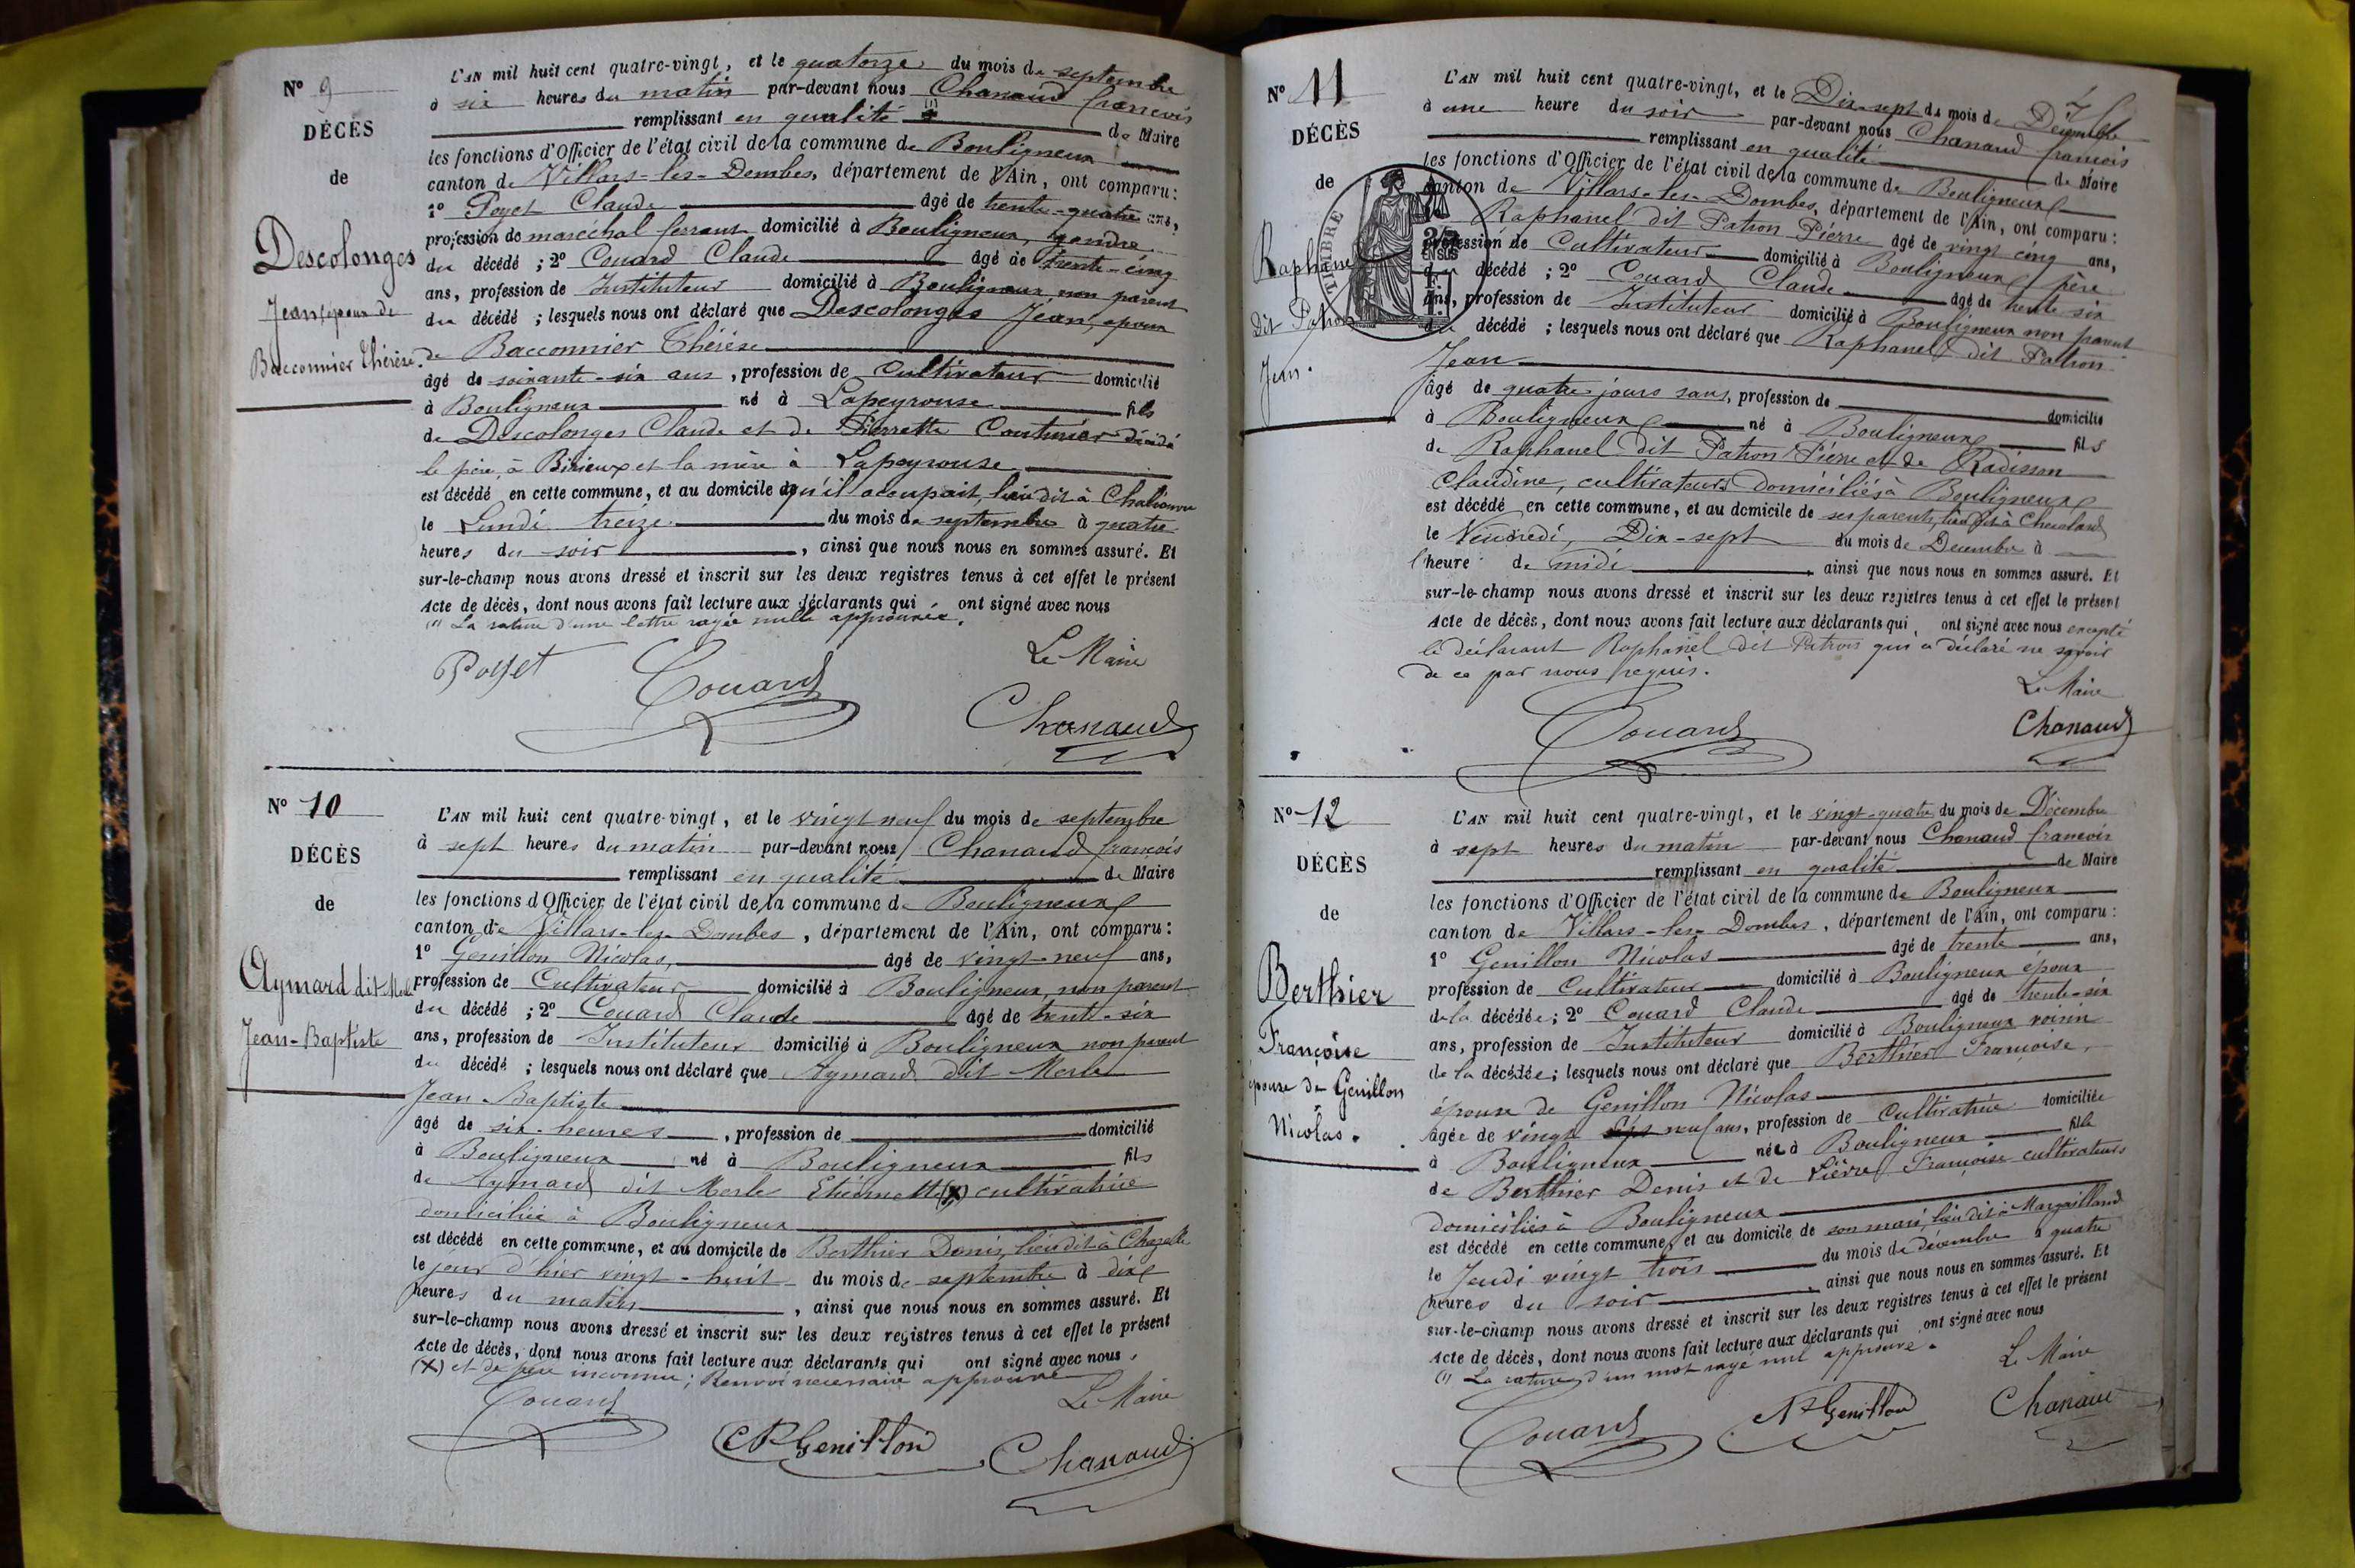 N° 9
DÉCÈS
de
Descolonges
Jean, époux de
Bacconnier Thérèse.
L'AN mil huit cent quatre-vingt, et le quatorze du mois de septembre
à six heures du matin par-devant nous Chanaud françois
remplissant en qualité (1) de Maire
les fonctions d'Officier de l'état civil de la commune de Bouligneux
canton de Villars-les-Dombes, département de l'Ain, ont comparu:
1° Poyet Claude âgé de trente-quatre ans,
profession de maréchal ferrant domicilié à Bouligneux, gendre
du décédé ; 2° Couard Claude âgé de trente-cinq
ans, profession de Instituteur domicilié à Bouligneux, non parent
du décédé ; lesquels nous ont déclaré que Descolonges Jean, époux
de Bacconnier Thérèse
âgé de soixante-six ans, profession de Cultivateur domicilié
à Bouligneux né à Lapeyrouse fils
de Descolonges Claude et de Pierrette Couturier décédés
le père à Birieux et la mère à Lapeyrouse
est décédé en cette commune, et au domicile qu'il occupait, lieu dit à
le Lundi treize du mois de septembre à quatre
heures du soir, ainsi que nous nous en sommes assuré. Et
sur-le-champ nous avons dressé et inscrit sur les deux registres tenus à cet effet le présent
Acte de décès, dont nous avons fait lecture aux déclarants qui ont signé avec nous
(1) La rature d'une lettre rayée nulle approuvée.
Poyet Couard Le Maire
Chanaud
N° 10
DÉCÈS
de
Aymard dit Merle
Jean-Baptiste
L'AN mil huit cent quatre-vingt, et le vingt neuf du mois de septembre
à sept heures du matin par-devant nous Chanaud françois
remplissant en qualité de Maire
les fonctions d'Officier de l'état civil de la commune de Bouligneux
canton de Villars-les-Dombes, département de l'Ain, ont comparu:
1° Genillon Nicolas, âgé de vingt-neuf ans,
profession de Cultivateur domicilié à Bouligneux, non parent
du décédé ; 2° Couard Claude âgé de trente-six
ans, profession de Instituteur domicilié à Bouligneux non parent
du décédé ; lesquels nous ont déclaré que Aymard dit Merle
Jean-Baptiste
âgé de six heures, profession de domicilié
à Bouligneux né à Bouligneux fils
de Aymard dit Merle Etiennette (X) cultivatrice
domiciliée à Bouligneux
est décédé en cette commune, et au domicile de Berthier Denis, lieu dit à Chazelle
le jour d'hier vingt-huit du mois de septembre à dix
heures du matin, ainsi que nous nous en sommes assuré. Et
sur-le-champ nous avons dressé et inscrit sur les deux registres tenus à cet effet le présent
Acte de décès, dont nous avons fait lecture aux déclarants qui ont signé avec nous.
(X) et de père inconnu; Renvoi nécessaire approuvé
Couard Le Maire
N Genillon Chanaud
N° 11
DÉCÈS
de
Raphanel
dit Patron
Jean.
TIMBRE
2/10
EN SUS
L'AN mil huit cent quatre-vingt, et le Dix-sept du mois de Décembre
à une heure du soir par-devant nous Chanaud françois
remplissant en qualité de Maire
les fonctions d'Officier de l'état civil de la commune de Bouligneux
canton de Villars-les-Dombes, département de l'Ain, ont comparu:
Raphanel dit Patron Pierre âgé de vingt cinq ans,
profession de Cultivateur domicilié à Bouligneux père
du décédé ; 2° Couard Claude âgé de trente six
ans, profession de Instituteur domicilié à Bouligneux non parent
du décédé ; lesquels nous ont déclaré que Raphanel dit Patron
Jean
âgé de quatre jours sans, profession de domicilié
à Bouligneux né à Bouligneux fils
de Raphanel dit Patron Pierre et de Radisson
Claudine, cultivateurs domiciliés à Bouligneux
est décédé en cette commune, et au domicile de ses parents, lieu dit à
le Vendredi, Dix-sept du mois de Decembre à
l'heure de midi ainsi que nous nous en sommes assuré. Et
sur-le-champ nous avons dressé et inscrit sur les deux registres tenus à cet effet le présent
Acte de décès, dont nous avons fait lecture aux déclarants qui ont signé avec nous excepté
le déclarant Raphanel dit Patron qui a déclaré ne savoir
de ce par nous requis.
Le Maire
Couard Chanaud
N° 12
DÉCÈS
de
Berthier
Françoise
épouse de Genillon
Nicolas.
L'AN mil huit cent quatre-vingt, et le vingt-quatre du mois de Décembre
à sept heures du matin par-devant nous Chanaud francois
remplissant en qualité de Maire
les fonctions d'Officier de l'état civil de la commune de Bouligneux
canton de Villars-les-Dombes, département de l'Ain, ont comparu:
1° Genillon Nicolas âgé de trente ans,
profession de Cultivateur domicilié à Bouligneux époux
de la décédée ; 2° Couard Claude âgé de trente-six
ans, profession de Instituteur domicilié à Bouligneux voisin
de la décédée ; lesquels nous ont déclaré que Berthier Françoise,
épouse de Genillon Nicolas
âgée de vingt neuf ans, profession de Cultivatrice domiciliée
à Bouligneux née à Bouligneux fille
de Berthier Denis et de Pièrre Françoise cultivateurs
domiciliés à Bouligneux
est décédé en cette commune, et au domicile de son mari, lieu dit à Margailland
le Jeudi vingt trois du mois de décembre à quatre
heures du soir, ainsi que nous nous en sommes assuré. Et
sur-le-champ nous avons dressé et inscrit sur les deux registres tenus à cet effet le présent
Acte de décès, dont nous avons fait lecture aux déclarants qui ont signé avec nous
(1) La rature d'un mot rayé nul approuvé.
Le Maire
Couard N Genillon Chanaud